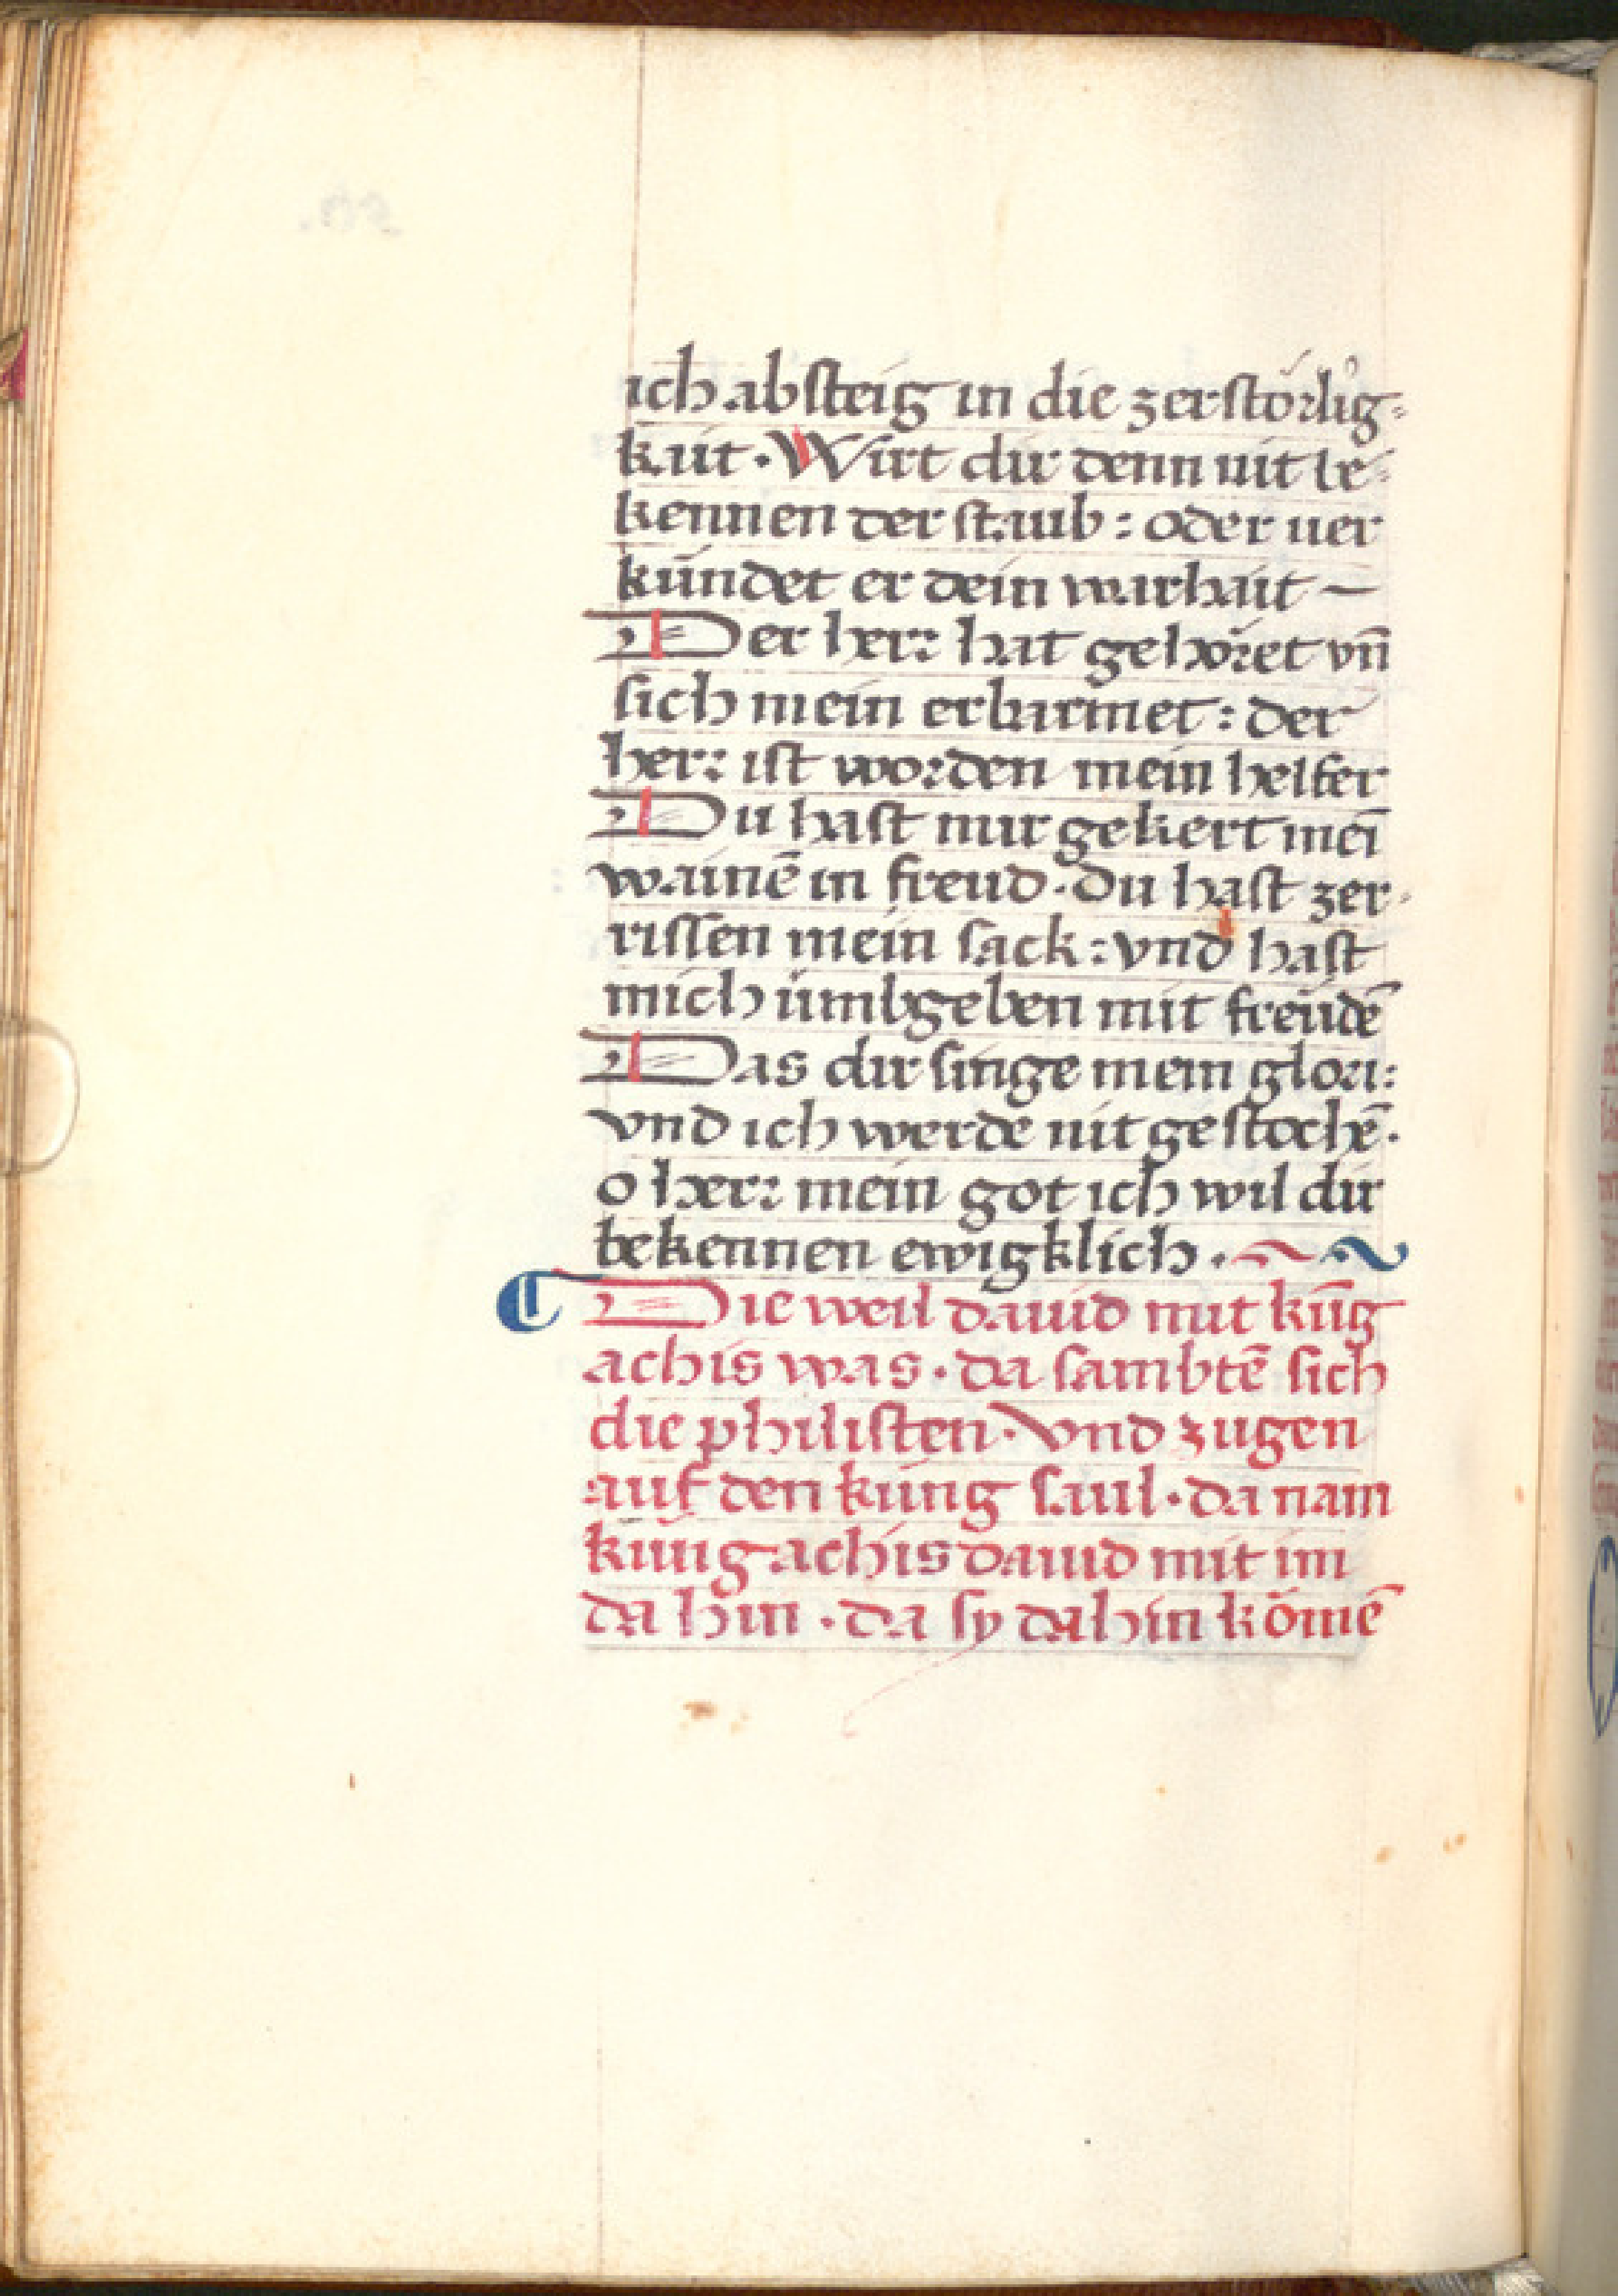 ich absteig in die zerstörlig=
kait · Wirt dir denn nit be=
kennen der staub : oder uer
kündet er dein warhait —
Der herr hat gehöret vn̄
sich mein erbarmet : der
herr ist worden mein helfer
Du hast mir gekert mei̅
wainē in freud · du hast zer=
rissen mein sack : vnd hast
mich ümbgeben mit freüdē
Das dir singe mein glori :
vnd ich werde nit gestochē ·
o herr mein got ich wil dir
bekennen ewigklich ·
Die weil dauid mit kün̄g
achis was · da sambtē sich
die philisten · vnd zugen
auf den küng saul · da nam
küng achis dauid mit im
da hin · da sy dahin kōmē